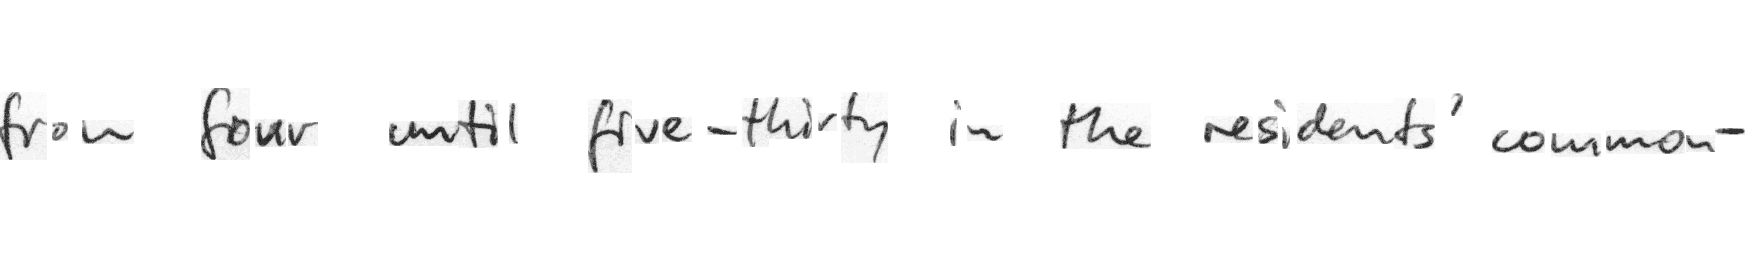 from four until five-thirty in the residents' common-